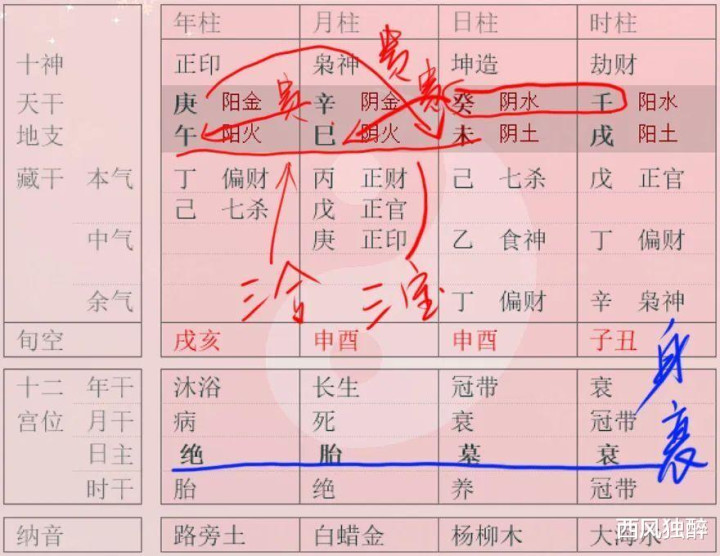 年柱 月柱 日柱 时柱
十神 正印 枭神 坤造 劫财
天干 庚 阳金 辛 阴金 癸 阴水 壬 阳水
地支 午 阳火 巳 阴火 未 阴土 戌 阳土
贵 贵 贵
藏干 本气 丁 偏财 丙 正财 己 七杀 戊 正官
己 七杀 戊 正官
中气 庚 正印 乙 食神 丁 偏财
余气 丁 偏财 辛 枭神
三会 三宝
旬空 戌亥 申酉 申酉 子丑
身衰
十二 年干 沐浴 长生 冠带 衰
宫位 月干 病 死 衰 冠带
日主 绝 胎 墓 衰
时干 胎 绝 养 冠带
纳音 路旁土 白蜡金 杨柳木 大海水
西风独醉